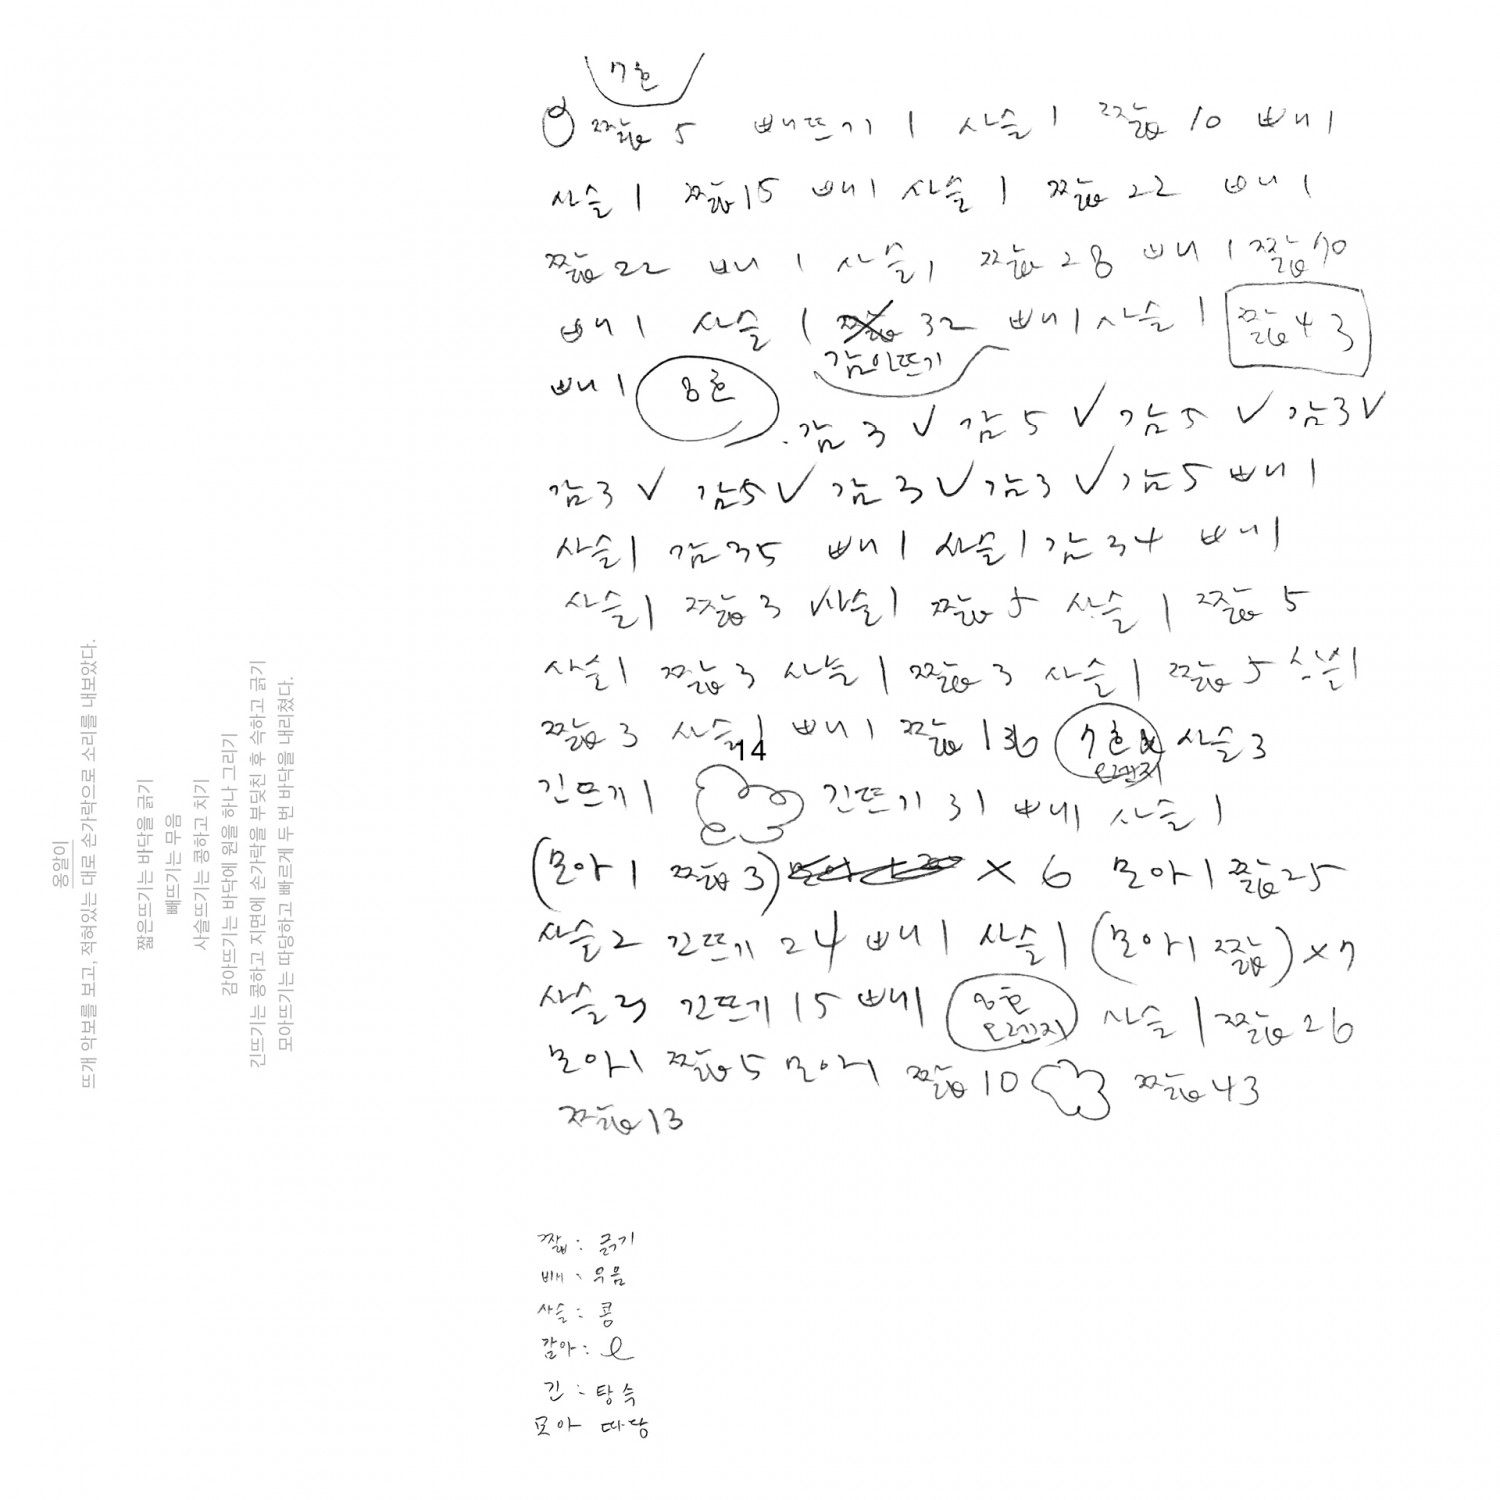 옹알이
뜨개 악보를 보고, 적혀있는 대로 손가락으로 소리를 내보았다.
짧은뜨기는 바닥을 긁기
빼뜨기는 무음
사슬뜨기는 콩하고 치기
감아뜨기는 바닥에 원을 하나 그리기
긴뜨기는 콩하고 지면에 손가락을 부딪친 후 슥하고 긁기
모아뜨기는 따당하고 빠르게 두 번 바닥을 내리쳤다.
7호
짧 5 빼뜨기 1 사슬 1 짧 10 빼 1
사슬 1 짧 15 빼 1 사슬 1 짧 22 빼 1
짧 22 빼 1 사슬 1 짧 28 빼 1 짧 10
빼 1 사슬 1 짧 32 빼 1 사슬 1 짧 43
감아뜨기
빼 1 8호
감 3 ✓ 감 5 ✓ 감 5 ✓ 감 3 ✓
감 3 ✓ 감 5 ✓ 감 3 ✓ 감 3 ✓ 감 5 빼 1
사슬 1 감 35 빼 1 사슬 1 감 34 빼 1
사슬 1 짧 3 사슬 1 짧 5 사슬 1 짧 5
사슬 1 짧 3 사슬 1 짧 3 사슬 1 짧 5 사슬 1
짧 3 사슬 1 빼 1 짧 136 7호 오렌지 사슬 3
14
긴뜨기 1 긴뜨기 31 빼 1 사슬 1
(모아 1 짧 3) × 6 모아 1 짧 25
사슬 2 긴뜨기 24 빼 1 사슬 1 (모아 1 짧) × 7
사슬 긴뜨기 15 빼 1 8호 오렌지 사슬 1 짧 26
모아 1 짧 5 모아 1 짧 10 짧 43
짧 13
짧 : 긁기
빼 : 무음
사슬 : 콩
감아 :
긴 : 탕슥
모아 따당